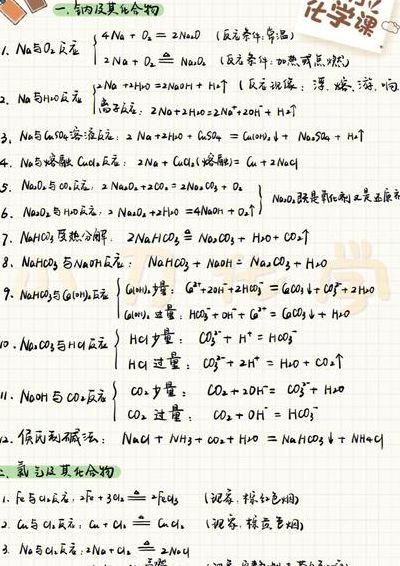 化学课
一、钠及其化合物
1. Na与O₂反应 { 4Na + O₂ = 2Na₂O (反应条件: 常温)
2Na + O₂ ≜ Na₂O₂ (反应条件: 加热或点燃)
2. Na与H₂O反应 { 2Na + 2H₂O = 2NaOH + H₂↑ (反应现象: 浮、熔、游、响
离子反应: 2Na + 2H₂O = 2Na⁺ + 2OH⁻ + H₂↑
3. Na与CuSO₄溶液反应: 2Na + 2H₂O + CuSO₄ = Cu(OH)₂↓ + Na₂SO₄ + H₂↑
4. Na与熔融CuCl₂反应: 2Na + CuCl₂(熔融) = Cu + 2NaCl
5. Na₂O₂与CO₂反应: 2Na₂O₂ + 2CO₂ = 2Na₂CO₃ + O₂
6. Na₂O₂与H₂O反应: 2Na₂O₂ + 2H₂O = 4NaOH + O₂↑ } Na₂O₂既是氧化剂又是还原剂
7. NaHCO₃受热分解: 2NaHCO₃ ≜ Na₂CO₃ + H₂O + CO₂↑
8. NaHCO₃与NaOH反应: NaHCO₃ + NaOH = Na₂CO₃ + H₂O
9. NaHCO₃与Ca(OH)₂反应 { Ca(OH)₂少量: Ca²⁺ + 2OH⁻ + 2HCO₃⁻ = CaCO₃↓ + CO₃²⁻ + 2H₂O
Ca(OH)₂过量: HCO₃⁻ + OH⁻ + Ca²⁺ = CaCO₃↓ + H₂O
10. Na₂CO₃与HCl反应 { HCl少量: CO₃²⁻ + H⁺ = HCO₃⁻
HCl过量: CO₃²⁻ + 2H⁺ = H₂O + CO₂↑
11. NaOH与CO₂反应 { CO₂少量: CO₂ + 2OH⁻ = CO₃²⁻ + H₂O
CO₂过量: CO₂ + OH⁻ = HCO₃⁻
12. 侯氏制碱法: NaCl + NH₃ + CO₂ + H₂O = NaHCO₃↓ + NH₄Cl
二、氯气及其化合物
1. Fe与Cl₂反应: 2Fe + 3Cl₂ ≜ 2FeCl₃ (现象: 棕红色烟)
2. Cu与Cl₂反应: Cu + Cl₂ ≜ CuCl₂ (现象: 棕黄色烟)
3. Na与Cl₂反应: 2Na + Cl₂ ≜ 2NaCl